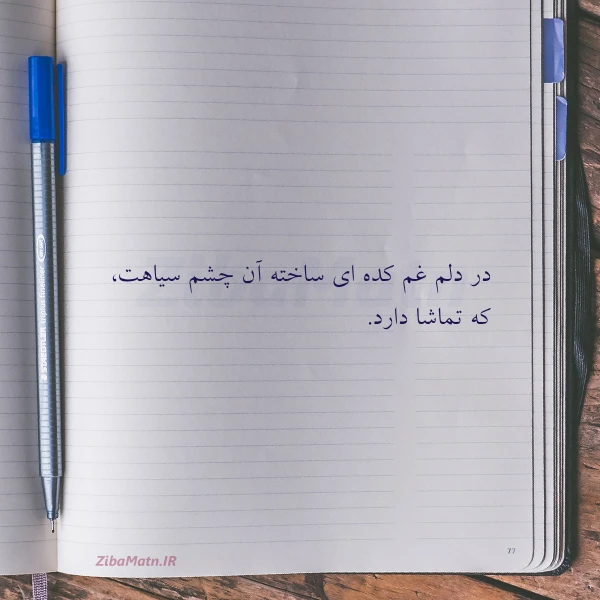 در دلم غم کده ای ساخته آن چشم سیاهت،
که تماشا دارد.
ZibaMatn.IR
77